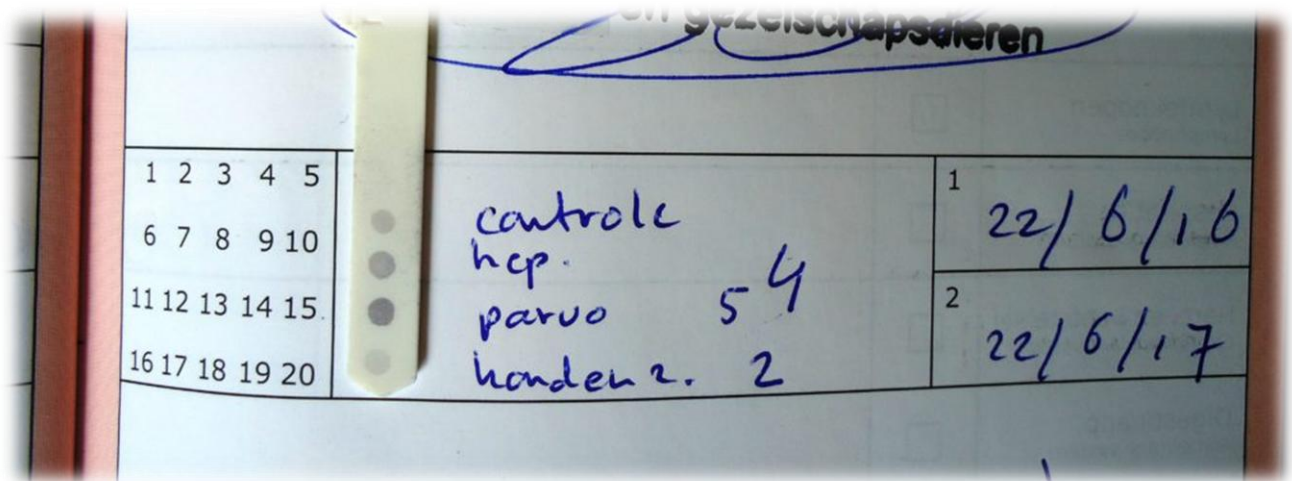 en gezelschapsdieren
1 2 3 4 5
6 7 8 9 10
11 12 13 14 15
16 17 18 19 20
controle
hep. 4
parvo 5
hondenz. 2
1
22/6/16
2
22/6/17